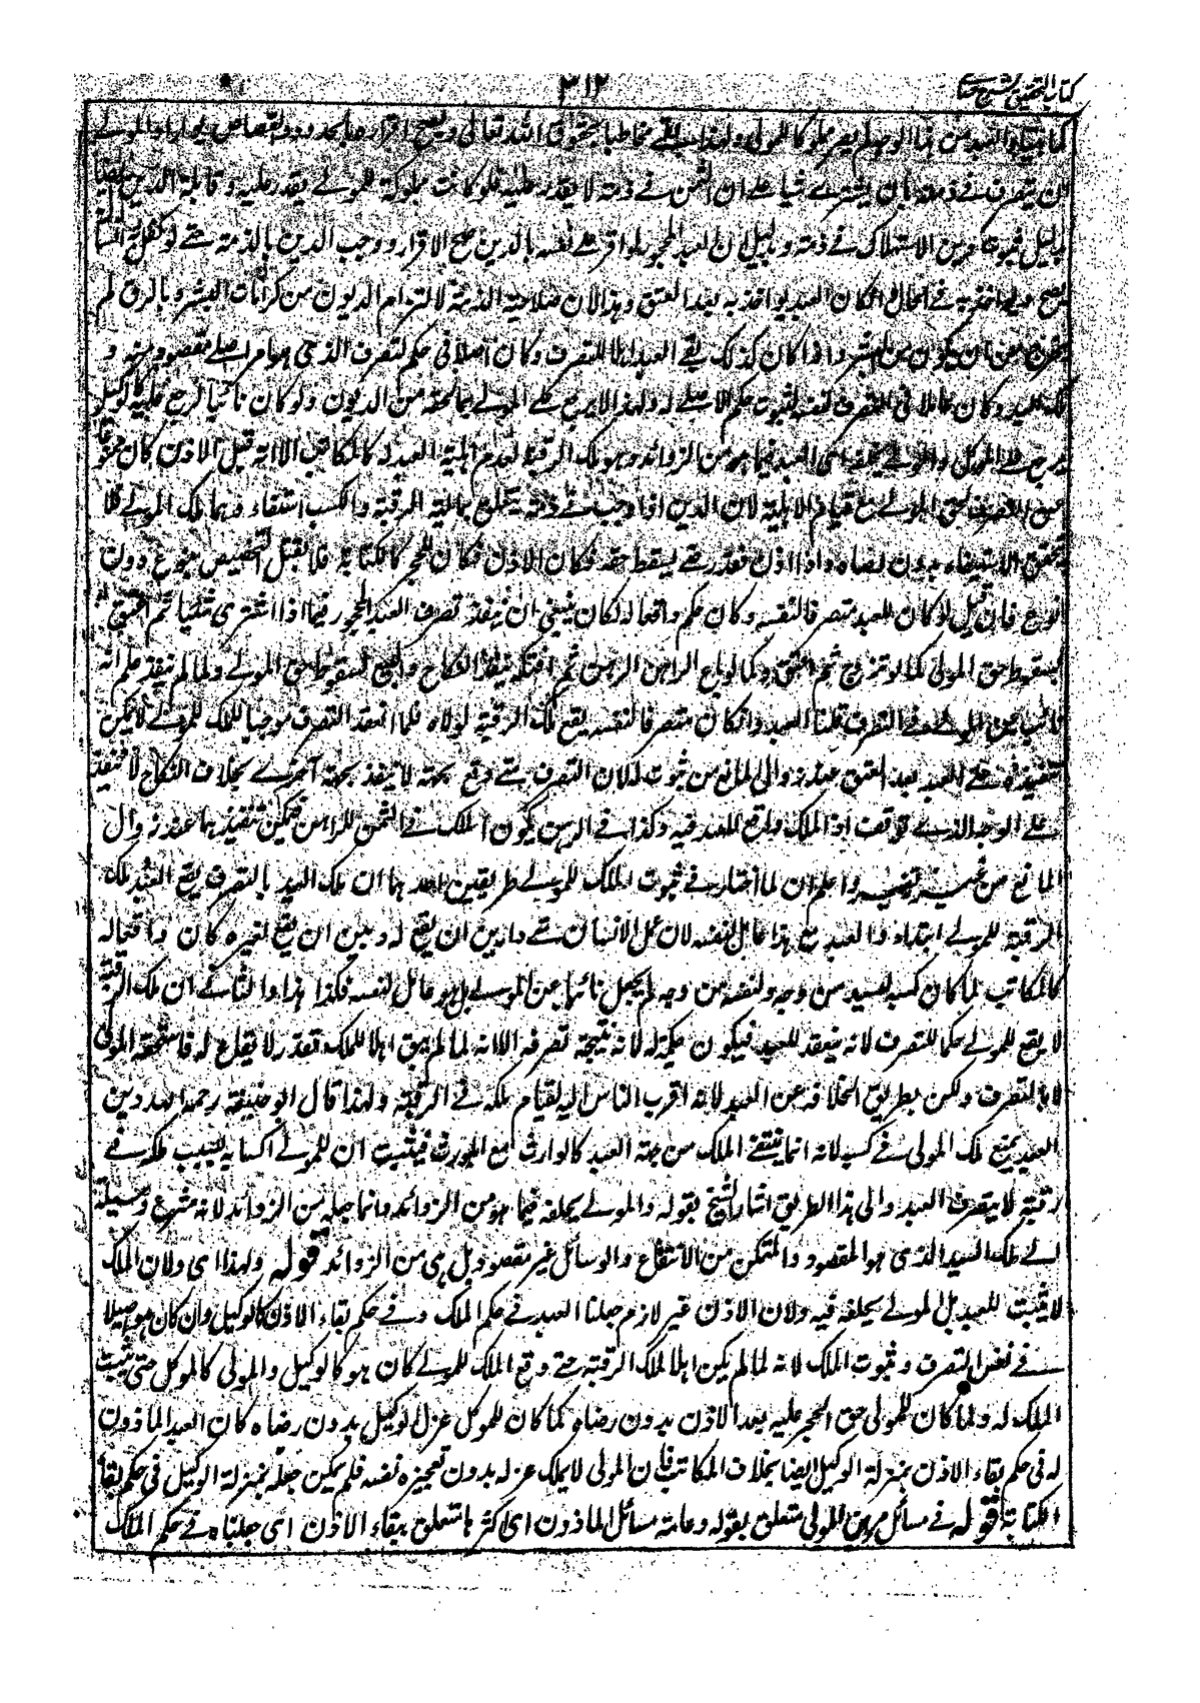 كتاب التحقيق شرح حسامي
٣١٢
لان يتصرف في ذمته بان يشتري شيئا على ان الثمن في ذمته لا يقدر عليه فلو كانت مملوكة للمولى يقدر عليه وقابلة الدين
في ذمته وبدليل ان العبد المحجور لو اقر على نفسه بالدين صح الاقرار ووجب الدين بالذمة حتى لو كفل به
في الحال وان كان العبد يؤاخذ به بعد العتق وهذا لان صلاحية الذمة لالتزام الديون من كرامات البشر وبالرق لم
يخرج من ان يكون من البشر واذا كان كذلك بقي العبد اهلا للتصرف وكان اصلا في حكم التصرف الذي هو امر اصلي مقصود منه و
وكان عاملا في التصرف لنفسه لثبوت حكم الاصلي له ولهذا لا يرجع على المولى بما لحقه من الديون ولو كان نائبا لرجع عليه كالوكيل
يرجع على الموكل والمولى يخلفه اي العبد فيما هو من الزوائد وهو ملك الرقبة لعدم اهلية العبد له كالمكاتب الا انه قبل الاذن كان ممنوعا
عن التصرف لحق المولى مع قيام الاهلية لان الدين اذا وجب في ذمته يتعلق بمالية الرقبة والكسب استيفاء وهما ملك المولى فلا
يتحقق الاستيفاء بدون رضاه واذا اذن فقد رضي بسقوط حقه فكان الاذن فكان للحجر كالكتابة فلا يقبل التخصيص بنوع دون
نوع فان قيل لو كان العبد متصرفا لنفسه وكان حكم واقعا له لكان ينبغي ان ينفذ تصرف العبد المحجور فيما اذا اشترى شيئا ثم اعتق
لسقوط حق المولى كما لو تزوج ثم اعتق وكما لو باع الراهن الرهن ثم افتكه ينفذ النكاح والبيع لسقوط حق المولى ولما لم ينفذ علم انه
نائب عن المولى في التصرف قلنا العبد وان كان متصرفا لنفسه يقع ملك الرقبة لمولاه فلما انعقد التصرف موجبا للملك للمولى لا يمكن
تنفيذه على العبد بعد العتق عند زوال المانع من ثبوت له لان التصرف متى وقع بجهة لا ينفذ بجهة اخرى بخلاف النكاح لانه ينفذ
على الوجه الذي توقف اذ الملك واقع للعبد فيه وكذا في الرهن يكون الملك في الثمن للراهن فيمكن تنفيذهما عند زوال
المانع من غير تغيير واعلم ان لما اختار في ثبوت الملك للمولى طريقين احدهما ان ملك اليد بالتصرف يقع للعبد وملك
الرقبة للمولى ابتداء والعبد مع هذا عامل لنفسه لان عمل الانسان متى دار بين ان يقع له وبين ان يقع لغيره كان واقعا له
كالمكاتب لما كان كسبه لسيده من وجه ولنفسه من وجه لم يجعل نائبا عن المولى بل هو عامل لنفسه فكذا هذا والثاني ان ملك الرقبة
لا يقع للمولى حكما للتصرف لانه ينعقد للعبد فيكون حكمه له لانه نتيجة تصرفه الا انه لما لم يبق اهلا للملك تعذر لايقاع له فاستحقه المولى
لا بالتصرف ولكن بطريق الخلافة عن العبد لانه اقرب الناس اليه لقيام ملكه في الرقبة ولهذا قال ابو حنيفة رحمه الله دين
العبد يمنع ملك المولى في كسبه لانه انما يتلقى الملك من جهة العبد كالوارث مع المورث فيثبت ان للمولى اكسابه بسبب ملكه في
رقبته لا بتصرف العبد والى هذا الطريق اشار الشيخ بقوله والمولى يخلفه فيما هو من الزوائد وانما جعله من الزوائد لانه مشرع وسيلة
الى ملك اليد الذي هو المقصود والمتمكن من الانتفاع والوسائل غير مقصود بل هي من الزوائد قوله ولهذا اي ولان الملك
لا يثبت للعبد بل المولى يخلفه فيه ولان الاذن غير لازم جعلنا العبد في حكم الملك وفي حكم بقاء الاذن كالوكيل وان كان هو اصيلا
في نفس التصرف وثبوت الملك لانه لما لم يكن اهلا لملك الرقبة حتى وقع الملك للمولى كان هو كالوكيل والمولى كالموكل حتى يثبت
الملك له ولما كان للمولى حق الحجر عليه بعد الاذن بدون رضاه كما كان للموكل عزل الوكيل بدون رضاه كان العبد الماذون
له في حكم بقاء الاذن بمنزلة الوكيل ايضا بخلاف المكاتب فان المولى لا يملك عزله بدون تعجيزه نفسه فلم يمكن جعله بمنزلة الوكيل في حكم بقاء
الكتابة قوله في مسائل مرض المولى متعلق بقوله وعامة مسائل الماذون اي اكثرها تتعلق ببقاء الاذن اي جعلناه في حكم الملك